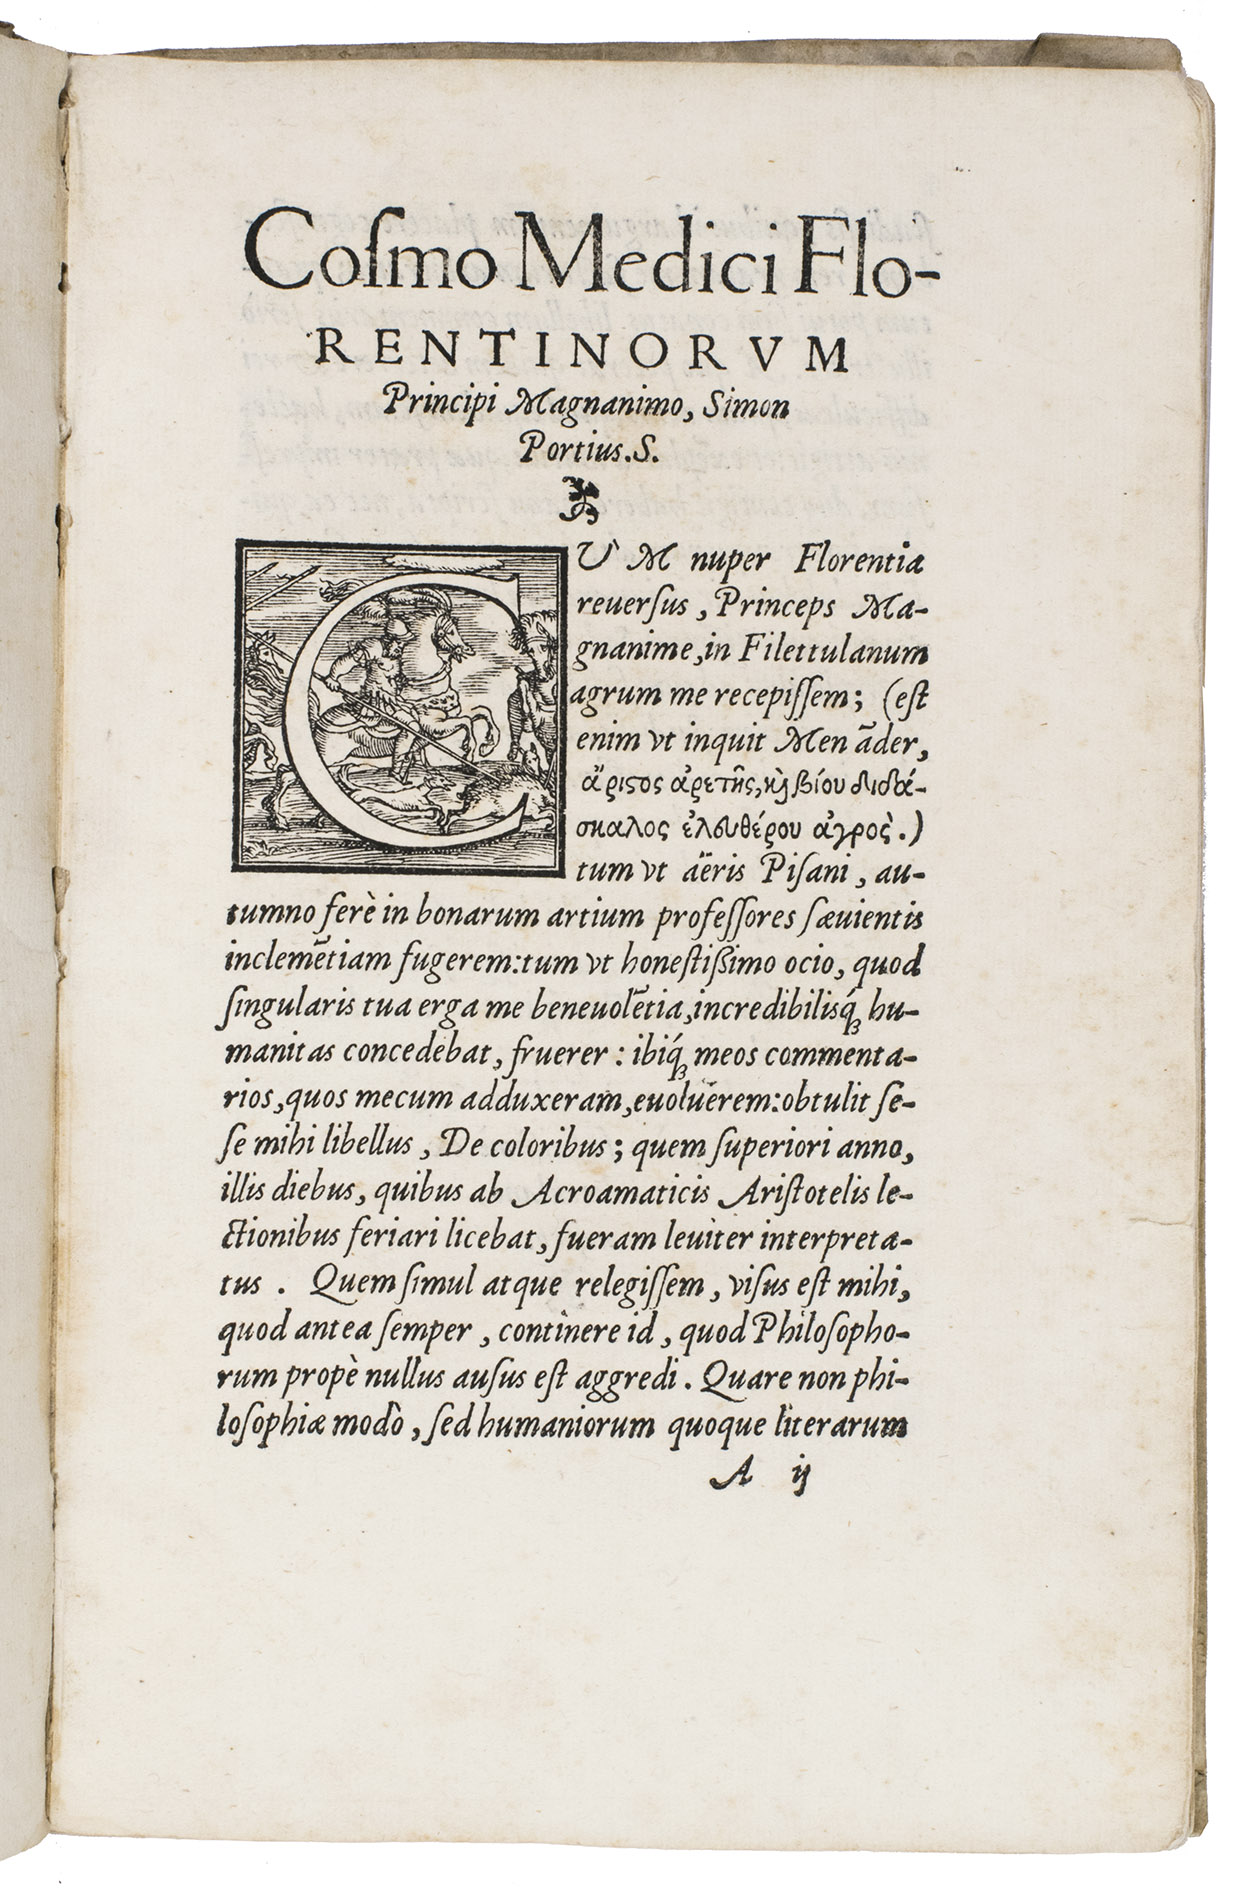 Coſmo Medici Flo-
RENTINORVM
Principi Magnanimo, Simon
Portius.S.
CVM nuper Florentia
reuerſus, Princeps Ma-
gnanime, in Filettulanum
agrum me recepiſſem; (eſt
enim vt inquit Menāder,
ἄριϛος ἀρετῆς, κὶ βίου διδά-
σκαλος ἐλευθέρου ἀγρὸς.)
tum vt aëris Piſani, au-
tumno ferè in bonarum artium profeſſores ſæuientis
inclemētiam fugerem: tum vt honeſtißimo ocio, quod
ſingularis tua erga me beneuolētia, incredibilisq́; hu-
manitas concedebat, fruerer: ibiq́; meos commenta-
rios, quos mecum adduxeram, euoluerem: obtulit ſe-
ſe mihi libellus, De coloribus; quem ſuperiori anno,
illis diebus, quibus ab Acroamaticis Ariſtotelis le-
ctionibus feriari licebat, fueram leuiter interpreta-
tus. Quem ſimul atque relegiſſem, viſus eſt mihi,
quod antea ſemper, continere id, quod Philoſopho-
rum propè nullus auſus eſt aggredi. Quare non phi-
loſophiæ modò, ſed humaniorum quoque literarum
A ij